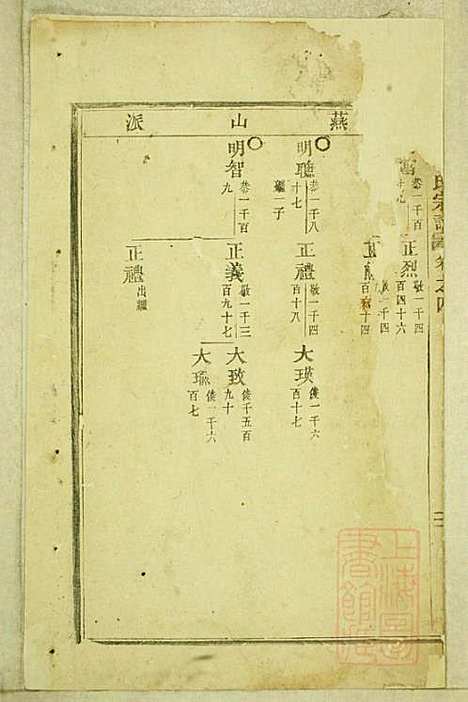 燕山派
氏宗譜 卷之四
恭一千百
正烈
敬一千四
百四十六
正
一千四
百 十四
明聰
恭一千八
十七
繼一子
正禮
敬一千四
百十八
大瑛
俵一千六
百十七
明智
恭一千百
九
正義
敬一千三
百九十七
大致
俵千五百
九十
大瑜
俵一千六
百七
正禮
出繼
上海圖書館藏